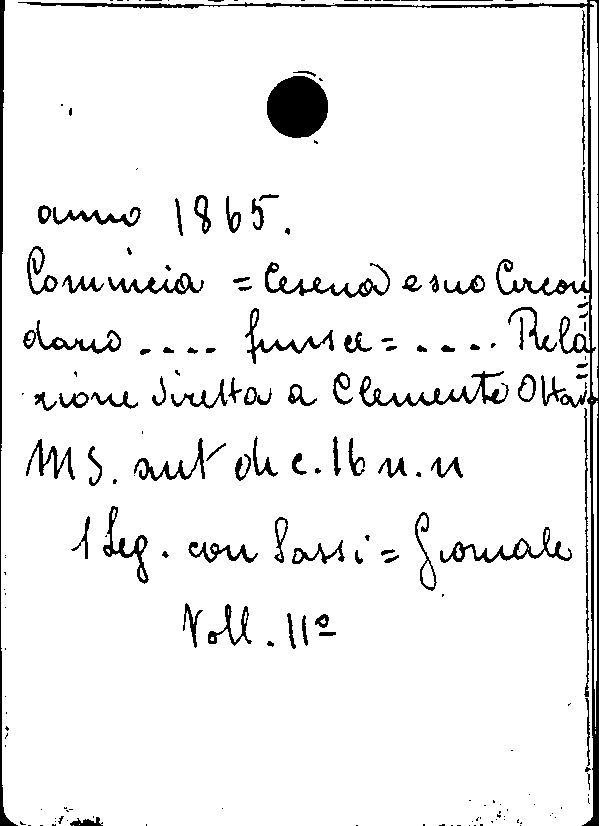 anno 1865.
Comincia = Cesena e suo Circon
dario .... finisce = .... Rela
zione diretta a Clemente Ottavo
MS. aut di c. 16 n. n
1 Leg. con Sassi = Giornale
Voll. 11º